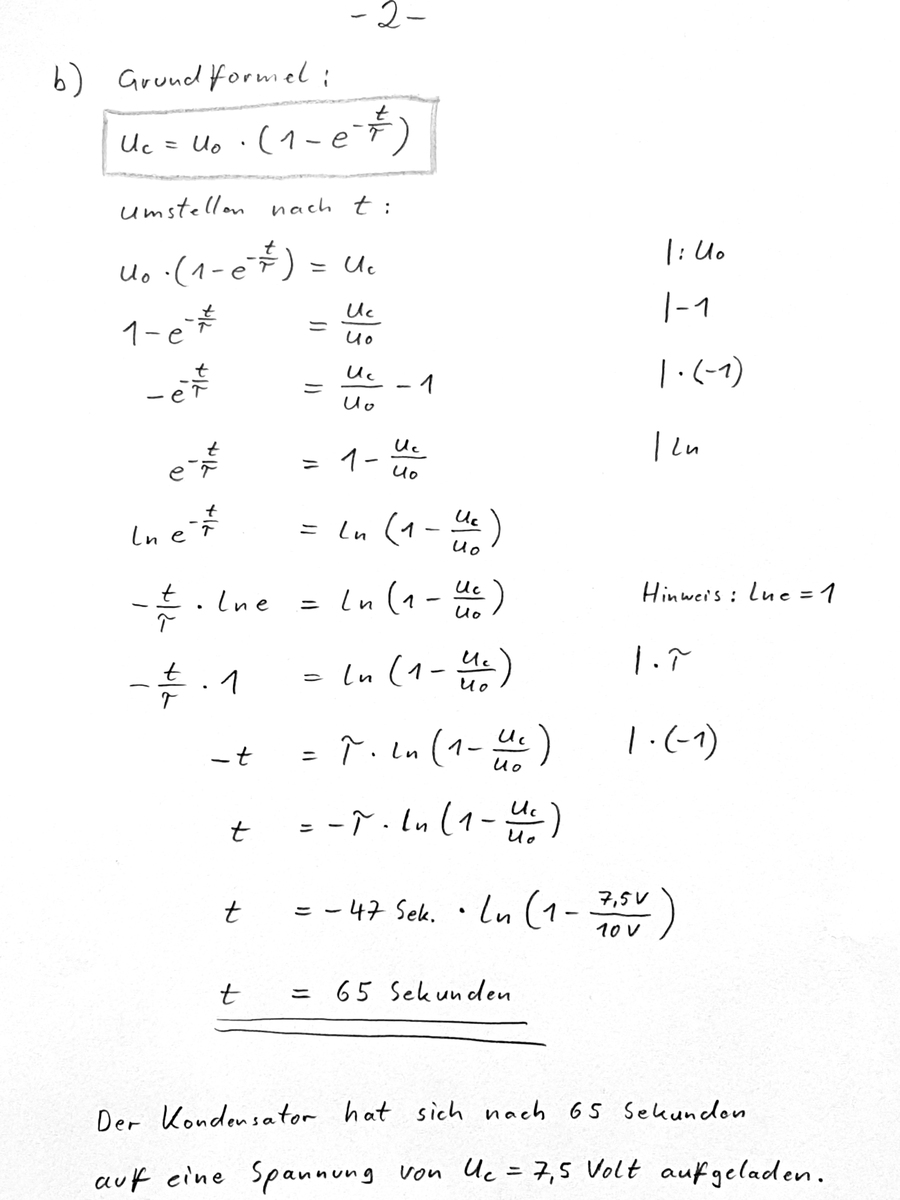 - 2 -
b) Grundformel:
uc = u₀ · (1 - e^(-t/τ))
Umstellen nach t:
u₀ · (1 - e^(-t/τ)) = uc |: u₀
1 - e^(-t/τ) = uc/u₀ |-1
- e^(-t/τ) = uc/u₀ - 1 | · (-1)
e^(-t/τ) = 1 - uc/u₀ | ln
ln e^(-t/τ) = ln (1 - uc/u₀)
- t/τ · ln e = ln (1 - uc/u₀) Hinweis: ln e = 1
- t/τ · 1 = ln (1 - uc/u₀) | · τ
- t = τ · ln (1 - uc/u₀) | · (-1)
t = - τ · ln (1 - uc/u₀)
t = - 47 Sek. · ln (1 - 7,5V/10V)
t = 65 Sekunden
Der Kondensator hat sich nach 65 Sekunden
auf eine Spannung von uc = 7,5 Volt aufgeladen.